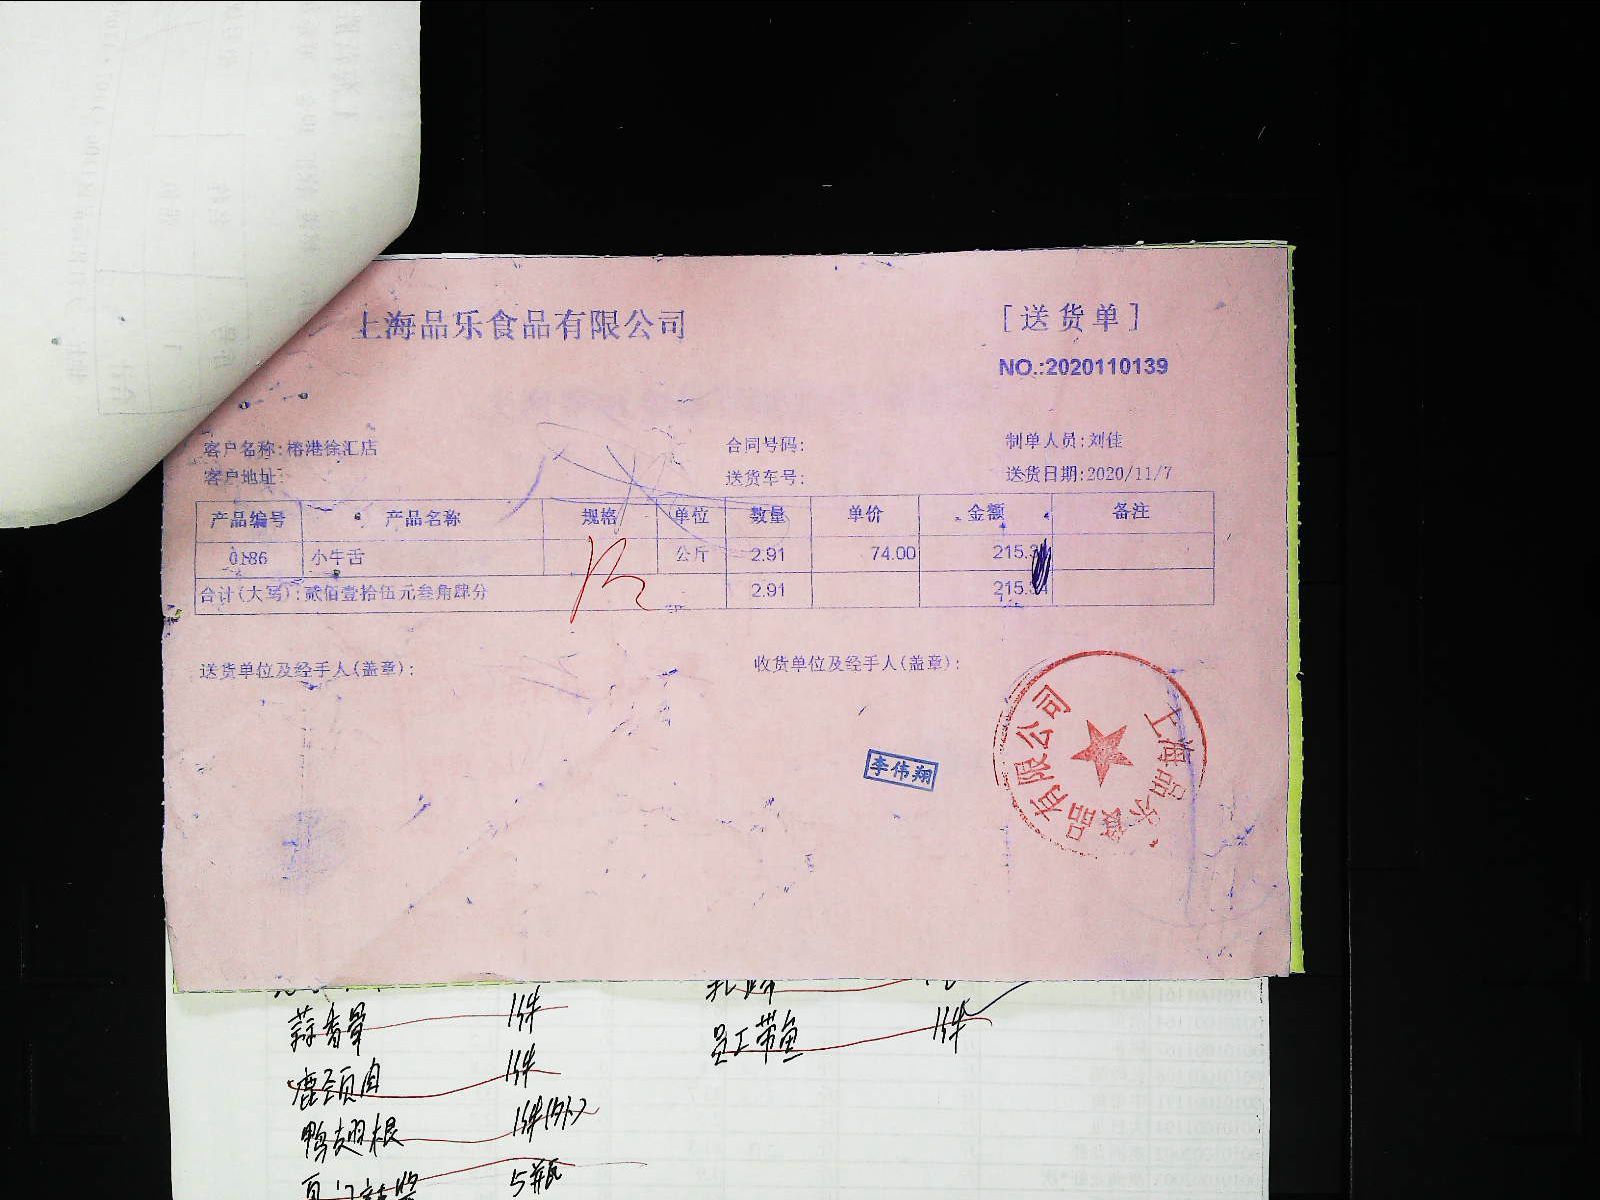 上海品乐食品有限公司
[送货单]
NO.:2020110139
客户名称:榕港徐汇店 合同号码: 制单人员:刘佳
客户地址: 送货车号: 送货日期:2020/11/7
产品编号 产品名称 规格 单位 数量 单价 金额 备注
0186 小牛舌 公斤 2.91 74.00 215.3
合计(大写):贰佰壹拾伍元叁角肆分 2.91 215.34
送货单位及经手人(盖章): 收货单位及经手人(盖章):
李伟翔
上海品乐食品有限公司
蒜香骨 1件
员工带鱼 1件
鹿颈肉 1件
鸭翅根 1件
5瓶